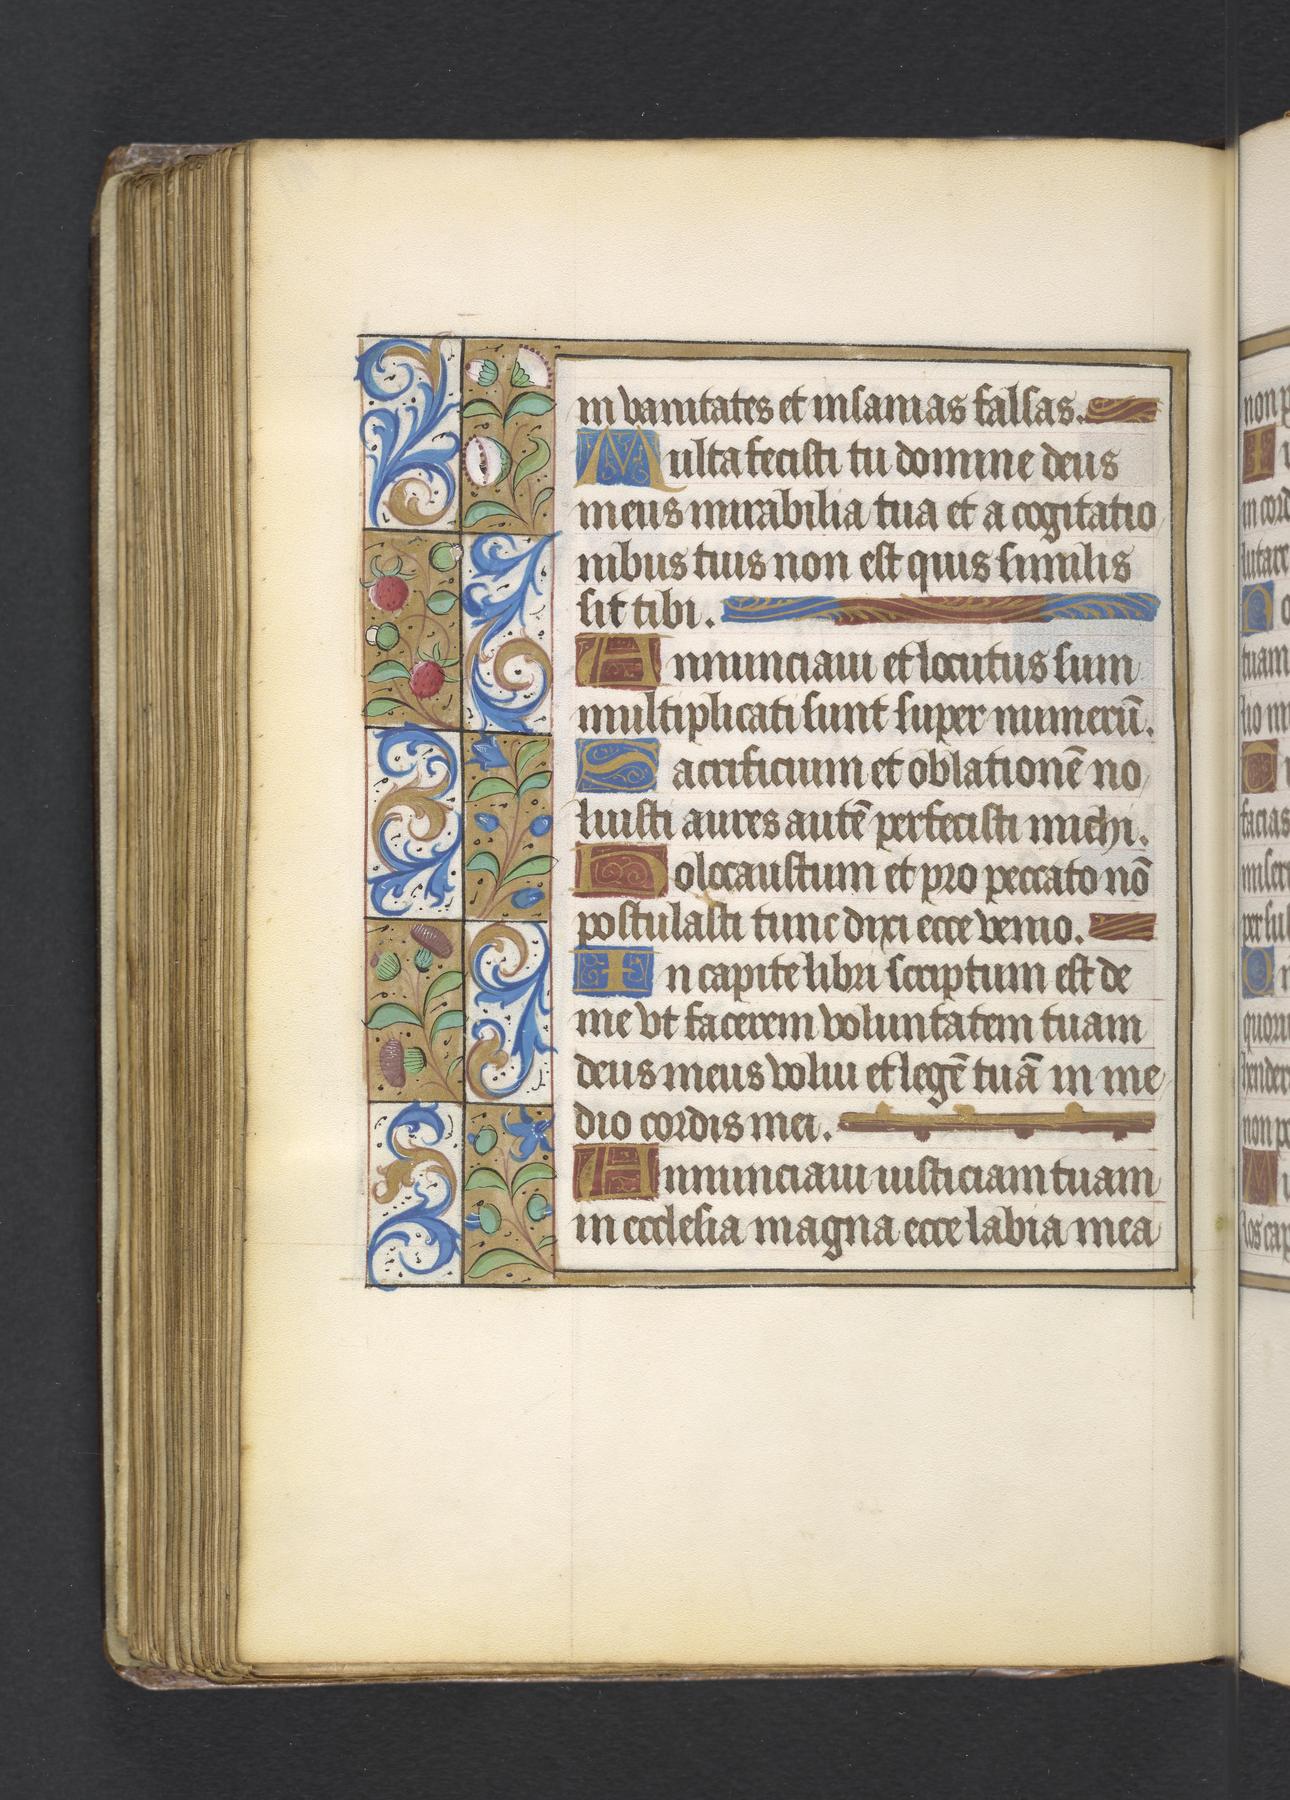 in vanitates et insanias falsas.
Multa fecisti tu domine deus
meus mirabilia tua et a cogitatio
nibus tuis non est quis similis
sit tibi.
Annunciavi et locutus sum
multiplicati sunt super numerū.
Sacrificium et oblationē no
luisti aures autē perfecisti michi.
Holocaustum et pro peccato nō
postulasti tunc dixi ecce venio.
In capite libri scriptum est de
me vt facerem voluntatem tuam
deus meus volui et legē tuā in me
dio cordis mei.
Annunciaui iusticiam tuam
in ecclesia magna ecce labia mea